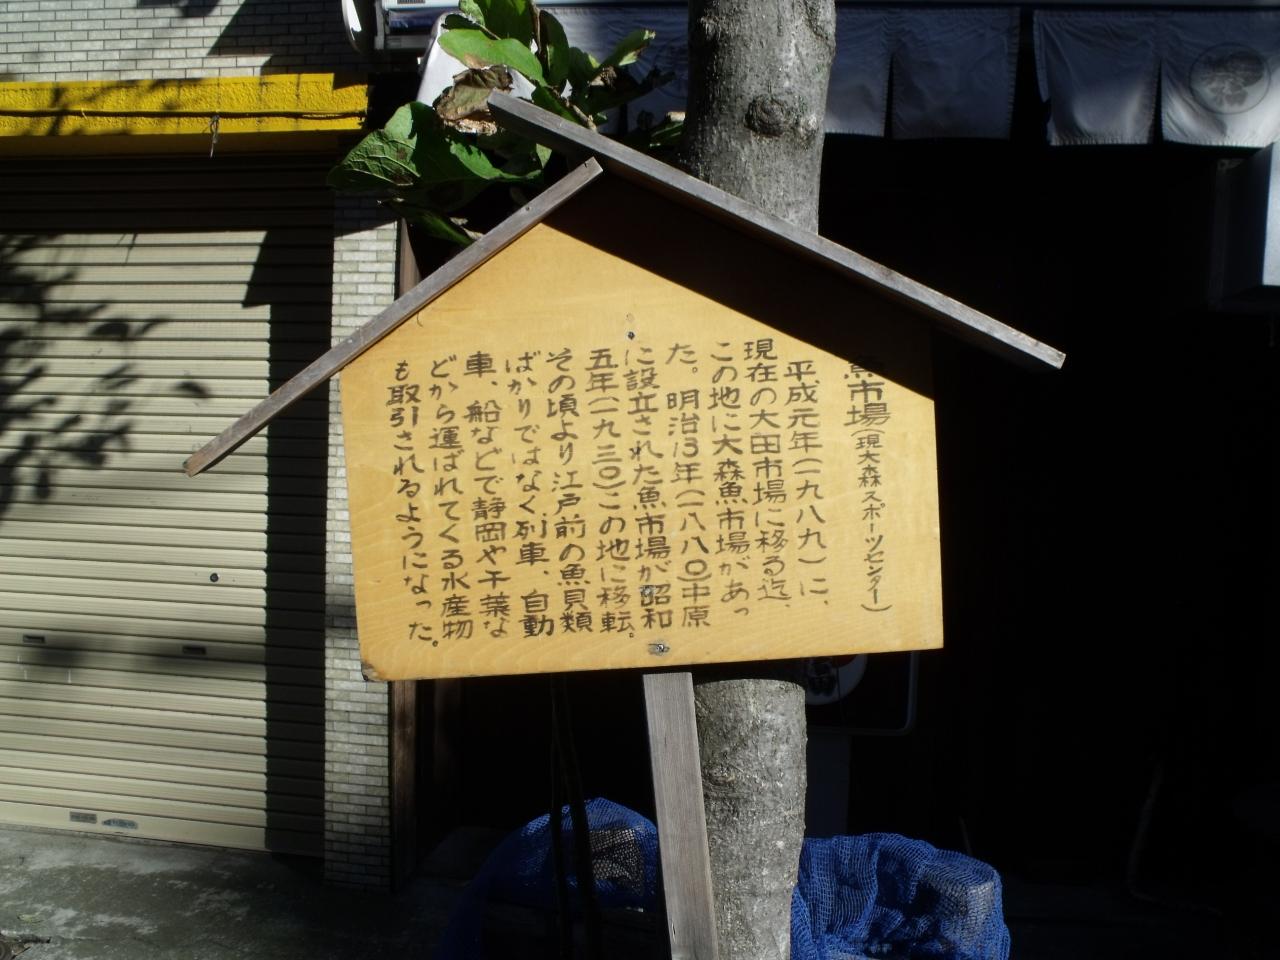 魚市場(現大森スポーツセンター)
平成元年(一九八九)に、
現在の大田市場に移る迄、
この地に大森魚市場があっ
た。明治13年(一八八〇)中原
に設立された魚市場が昭和
五年(一九三〇)この地に移転。
その頃より江戸前の魚貝類
ばかりではなく、列車、自動
車、船などで静岡や千葉な
どから運ばれてくる水産物
も取引されるようになった。